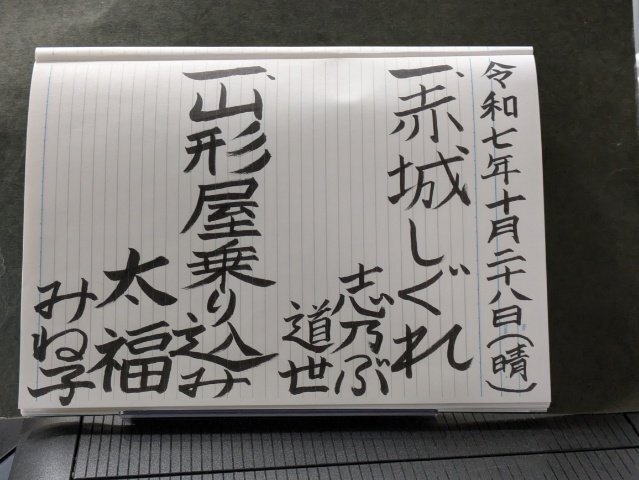 令和七年十月二十八日(晴)
一、赤城しぐれ
志乃ぶ
道世
一、山形屋乗り込み
太福
みね子